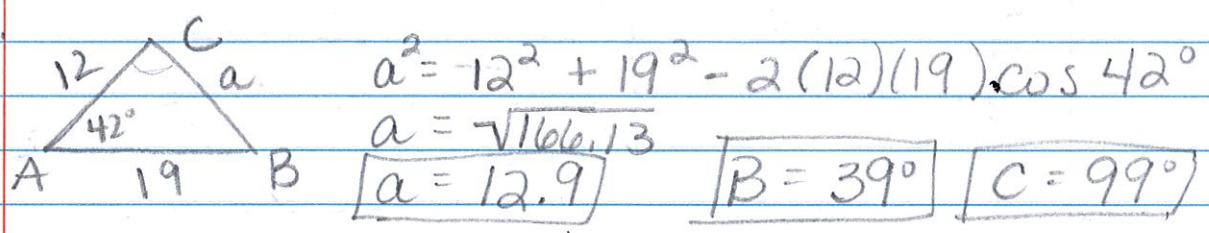 C
12
a
42°
A
19
B
a² = 12² + 19² - 2(12)(19) cos 42°
a = √166.13
a = 12.9
B = 39°
C = 99°